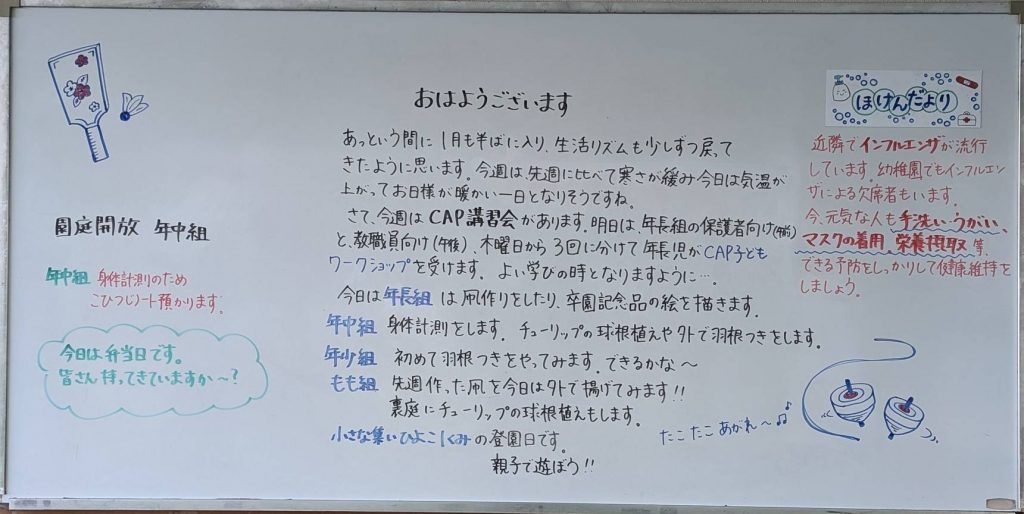 園庭開放 年中組
年中組 身体計測のため
こひつじノート預かります。
今日は弁当日です。
皆さん持ってきていますか～?
おはようございます
あっという間に1月も半ばに入り、生活リズムも少しずつ戻って
きたように思います。今週は、先週に比べて寒さが緩み今日は気温が
上がってお日様が暖かい一日となりそうですね。
さて、今週はCAP講習会があります。明日は、年長組の保護者向け(午前)
と、教職員向け(午後)、木曜日から3回に分けて年長児がCAP子ども
ワークショップを受けます。よい学びの時となりますように…
今日は年長組は凧作りをしたり、卒園記念品の絵を描きます。
年中組 身体計測をします。チューリップの球根植えや外で羽根つきをします。
年少組 初めて羽根つきをやってみます。できるかな～
もも組 先週作った凧を今日は外で揚げてみます!!
裏庭にチューリップの球根植えもします。
小さな集いひよこ1くみの登園日です。
親子で遊ぼう!!
たこ たこ あがれ～♫♪
ほけんだより
近隣でインフルエンザが流行
しています。幼稚園でもインフルエン
ザによる欠席者もいます。
今、元気な人も手洗い・うがい、
マスクの着用、栄養摂取 等、
できる予防をしっかりして健康維持を
しましょう。